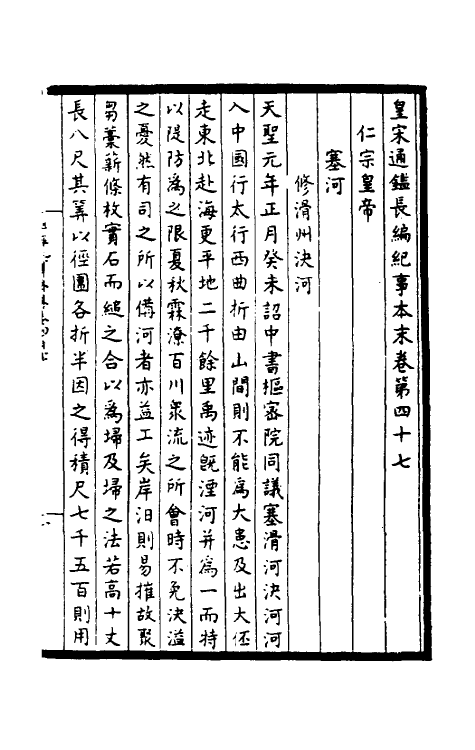 皇宋通鑑長編紀事本末卷第四十七
仁宗皇帝
塞河
修滑州決河
天聖元年正月癸未詔中書樞密院同議塞滑河決河河
入中國行太行西曲折由山間則不能爲大患及出大伾
走東北赴海更平地二千餘里禹迹旣湮河并爲一而特
以隄防爲之限夏秋霖潦百川衆流之所會時不免決溢
之憂然有司之所以備河者亦益工矣岸汨則易摧故聚
芻藁薪條枚實石而縋之合以爲埽及埽之法若高十丈
長八尺其筭以徑圍各折半因之得積尺七千五百則用